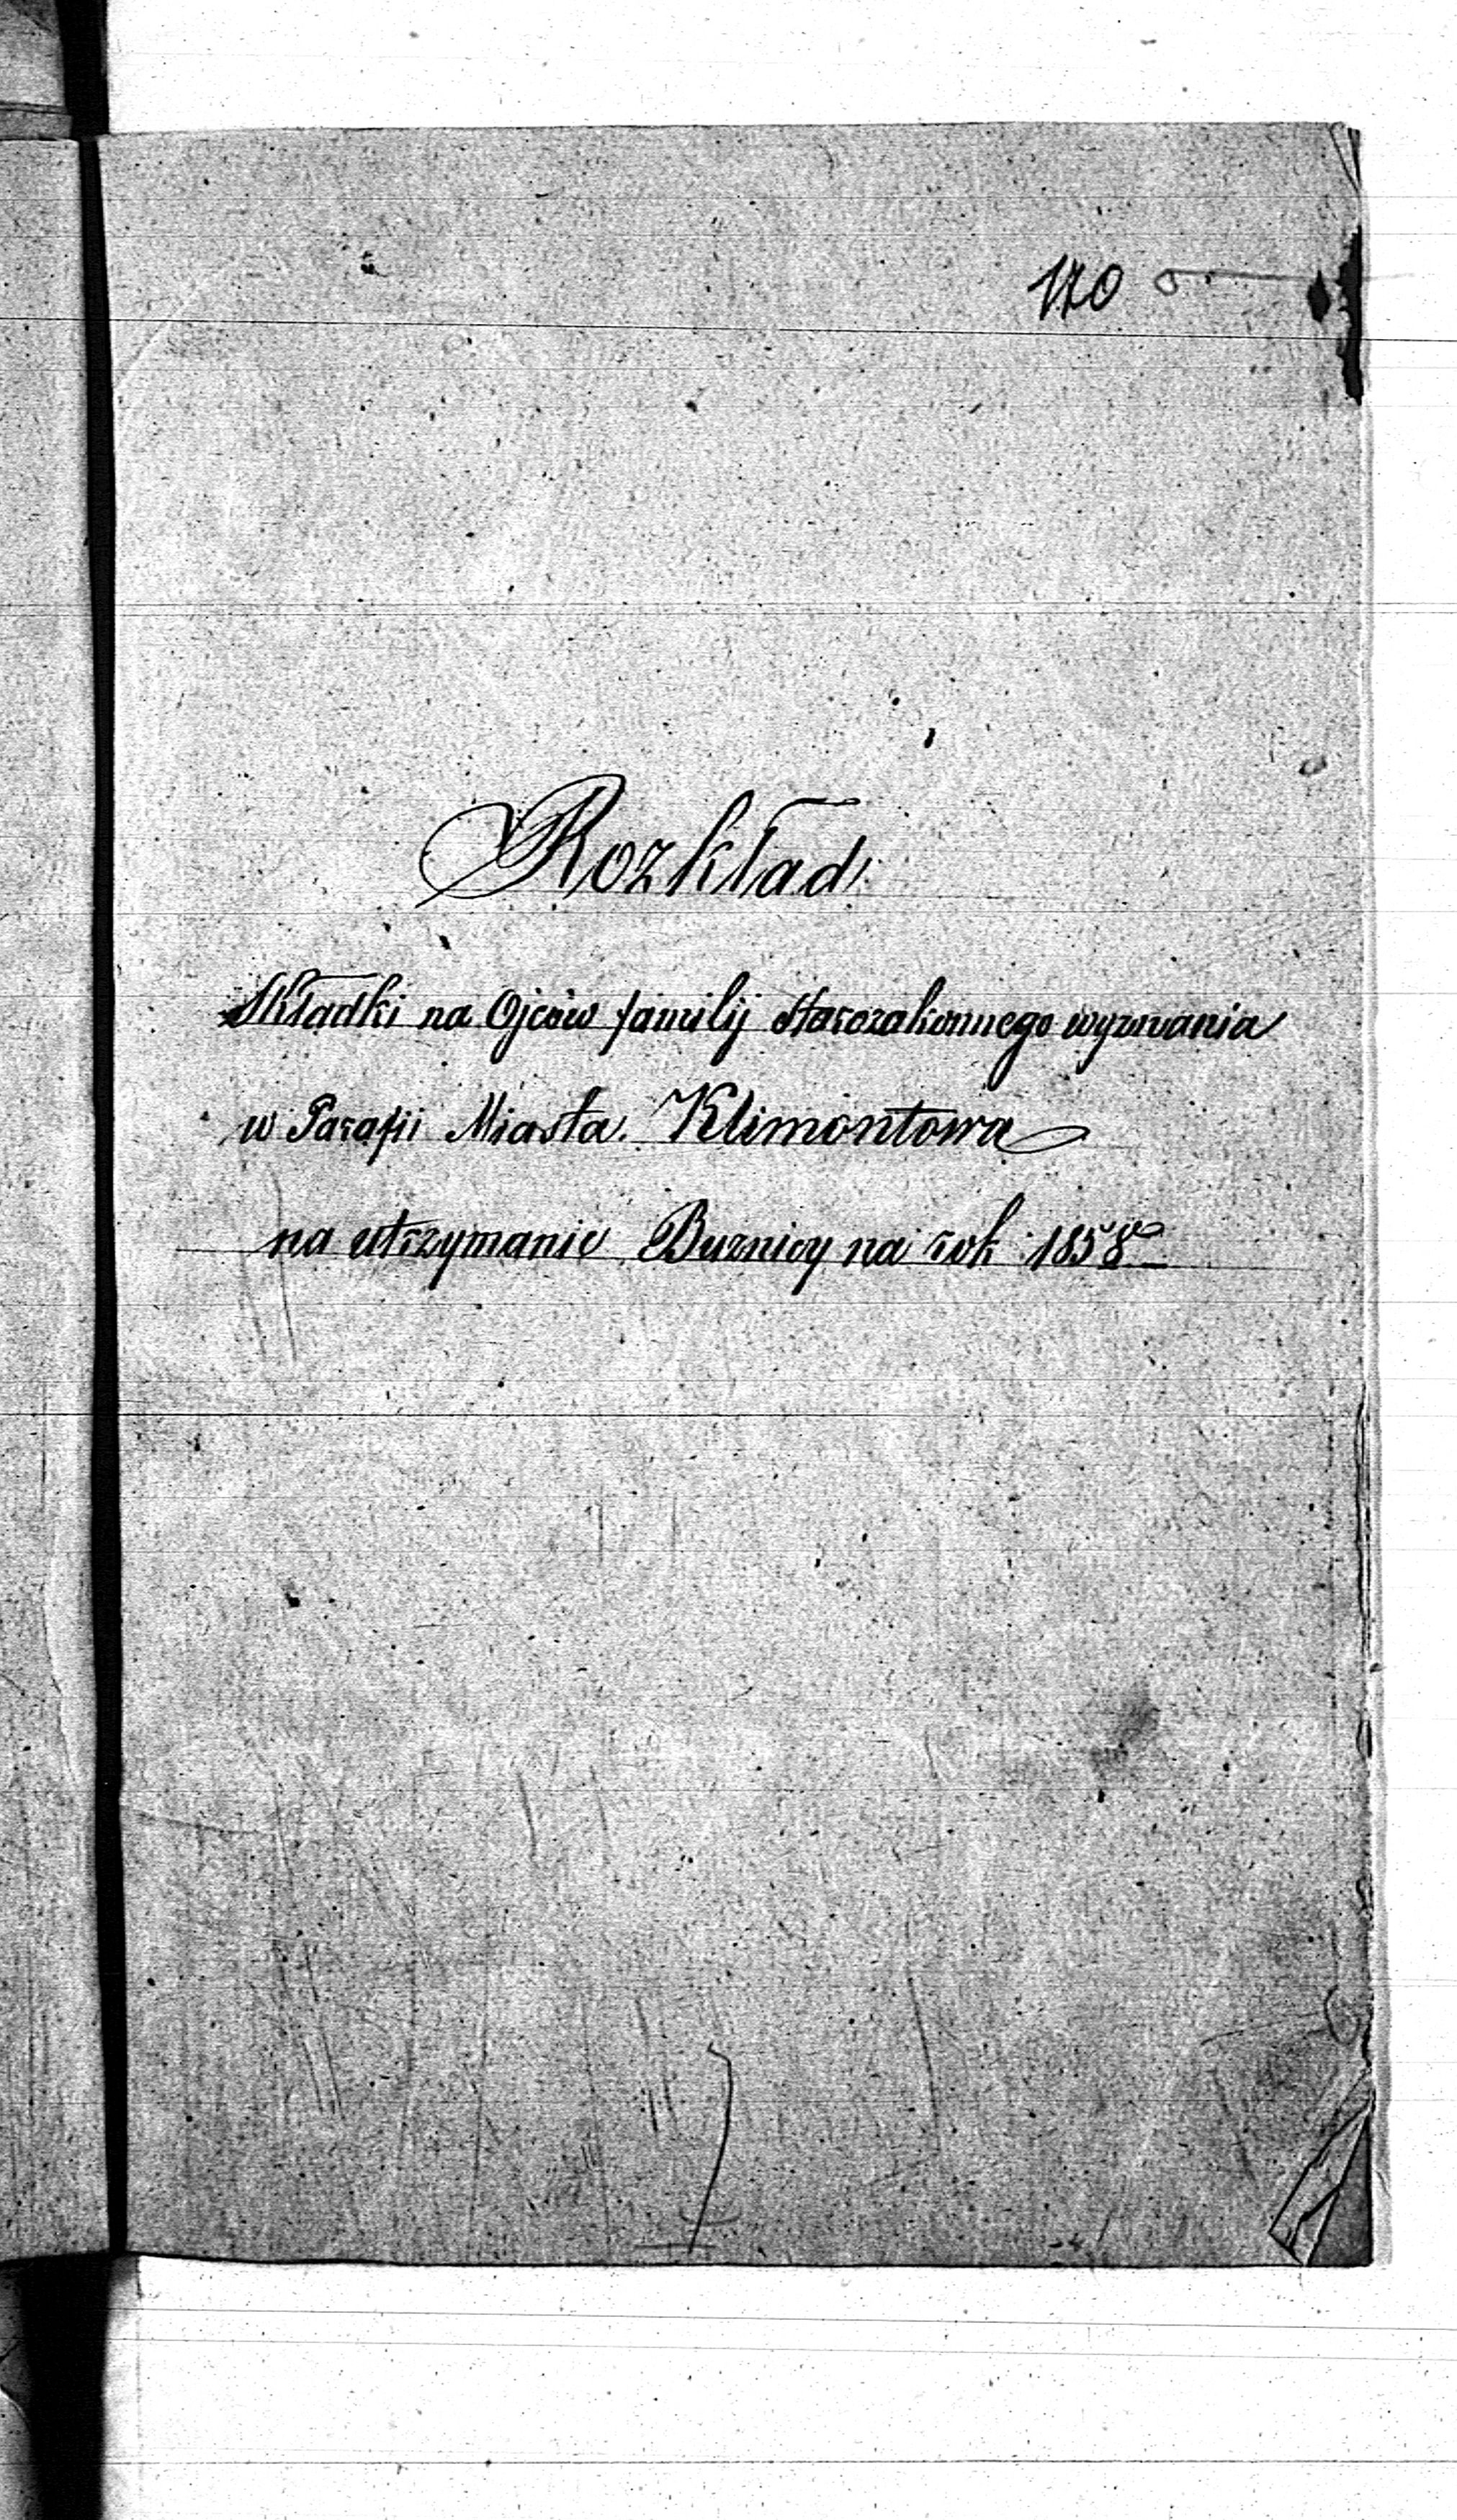 170
Rozkład
Składki na Ojców familij Starozakonnego wyznania
w Parafii Miasta Klimontowa
na utrzymanie Buznicy na rok 1858